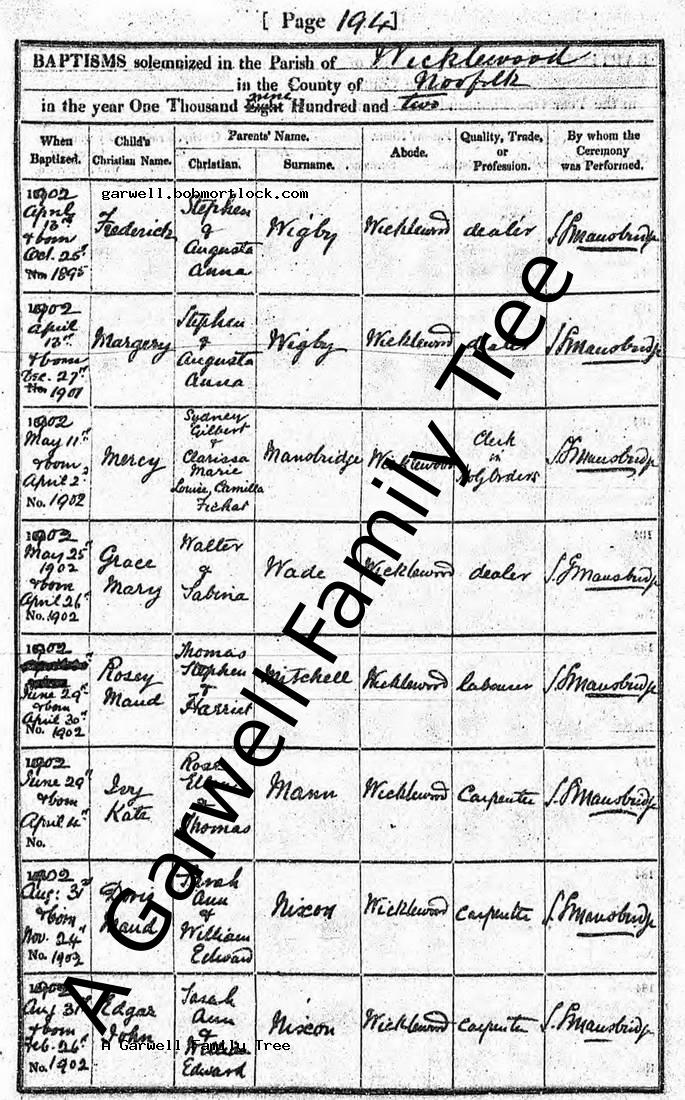 [ Page 194 ]
BAPTISMS solemnized in the Parish of Wicklewood
in the County of Norfolk
nine
in the year One Thousand Eight Hundred and two
When Baptized.
Child's Christian Name.
Parents' Name.
Christian.
Surname.
Abode.
Quality, Trade, or Profession.
By whom the Ceremony was Performed.
garwell.bobmortlock.com
1902
April
13th
& born
Oct. 25th
1895
Frederick
Stephen
&
Augusta
Anna
Wigby
Wicklewood
dealer
S. G. Mansbridge
1902
April
13th
& born
Dec. 27th
1901
Margery
Stephen
&
Augusta
Anna
Wigby
Wicklewood
dealer
S. G. Mansbridge
1902
May 11th
& born
April 2
No. 1902
Mercy
Sydney
Gilbert
&
Clarissa
Marie
Louise, Camilla
Mansbridge
Wicklewood
Clerk
in
Holy Orders
S. G. Mansbridge
1902
May 25th
1902
& born
April 26th
No. 1902
Grace
Mary
Walter
&
Sabina
Wade
Wicklewood
dealer
S. G. Mansbridge
1902
June 29th
& born
April 30th
No. 1902
Rosey
Maud
Thomas
Stephen
&
Harriet
Mitchell
Wicklewood
labourer
S. G. Mansbridge
1902
June 29th
& born
April 4th
No.
Ivy
Kate
&
Thomas
Mann
Wicklewood
Carpenter
S. G. Mansbridge
1902
Aug: 31st
& born
Nov. 24th
No. 1902
Doris
Maud
Sarah
Ann
&
William
Edward
Nixon
Wicklewood
carpenter
S. G. Mansbridge
1902
Aug 31st
& born
Feb. 26th
No. 1902
Edgar
John
Sarah
Ann
&
William
Edward
Nixon
Wicklewood
carpenter
S. G. Mansbridge
A Garwell Family Tree
A Garwell Family Tree